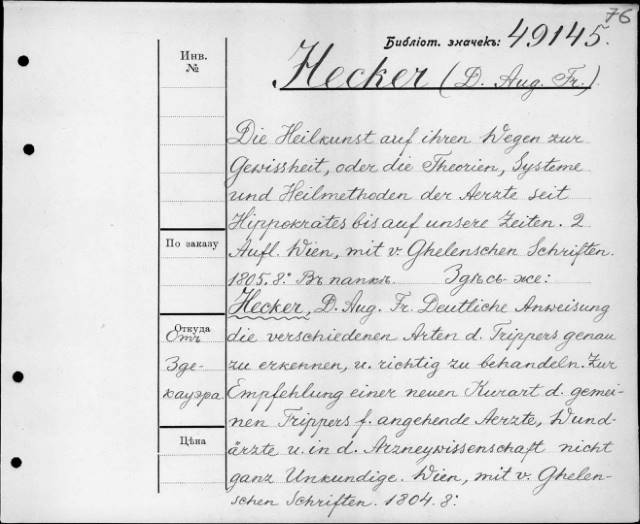 76
Библіот. значекъ: 49145.
Инв.
№
Hecker (D. Aug. Fr.)
Die Heilkunst auf ihren Wegen zur
Gewissheit, oder die Theorien, Systeme
und Heilmethoden der Aerzte seit
Hippokrates bis auf unsere Zeiten. 2
Aufl. Wien, mit v. Ghelenschen Schriften.
1805. 8:° Въ папкѣ. Здѣсь же:
По заказу
Hecker, D. Aug. Fr. Deutliche Anweisung
die verschiedenen Arten d. Trippers genau
zu erkennen, u. richtig zu behandeln. Zur
Empfehlung einer neuen Kurart d. gemei-
nen Trippers f. angehende Aerzte, Wund-
ärzte u. in d. Arzneywissenschaft nicht
ganz Unkundige. Wien, mit v. Ghelen-
schen Schriften. 1804. 8:
Откуда
Отъ
Зде-
кауэра
Цѣна